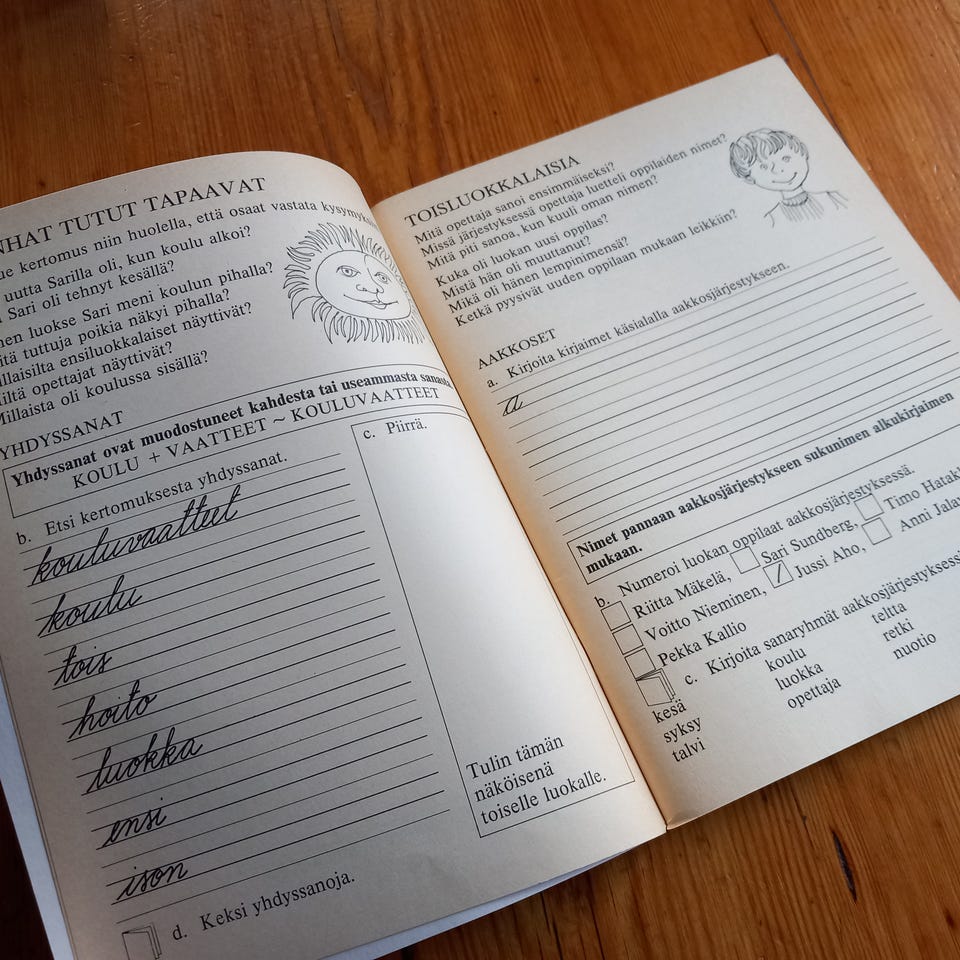 NHAT TUTUT TAPAAVAT
ue kertomus niin huolella, että osaat vastata
uutta Sarilla oli, kun koulu alkoi?
Sari oli tehnyt kesällä?
nen luokse Sari meni koulun pihalla?
itä tuttuja poikia näkyi pihalla?
llaisilta ensiluokkalaiset näyttivät?
iltä opettajat näyttivät?
Millaista oli koulussa sisällä?
YHDYSSANAT
Yhdyssanat ovat muodostuneet kahdesta tai useammasta
KOULU + VAATTEET ~ KOULUVAATTEET
b. Etsi kertomuksesta yhdyssanat.
kouluvaatteet
koulu
tois
hoito
luokka
ensi
ison
c. Piirrä.
Tulin tämän
näköisenä
toiselle luokalle.
d. Keksi yhdyssanoja.
TOISLUOKKALAISIA
Mitä opettaja sanoi ensimmäiseksi?
Missä järjestyksessä opettaja luetteli oppilaiden nimet?
Mitä piti sanoa, kun kuuli oman nimen?
Kuka oli luokan uusi oppilas?
Mistä hän oli muuttanut?
Mikä oli hänen lempinimensä?
Ketkä pyysivät uuden oppilaan mukaan leikkiin?
AAKKOSET
a. Kirjoita kirjaimet käsialalla aakkosjärjestykseen.
a
Nimet pannaan aakkosjärjestykseen sukunimen alkukirjaimen
mukaan.
b. Numeroi luokan oppilaat aakkosjärjestyksessä.
Riitta Mäkelä, Sari Sundberg, Timo Hatak
Voitto Nieminen, 1 Jussi Aho, Anni Jala
Pekka Kallio
c. Kirjoita sanaryhmät aakkosjärjestyksess
kesä koulu teltta
syksy luokka retki
talvi opettaja nuotio